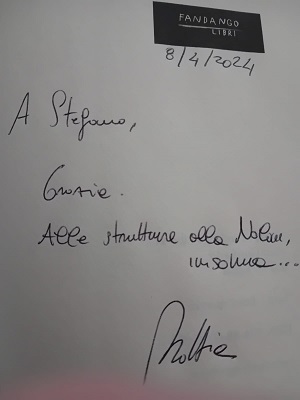 FANDANGO
LIBRI
8/4/2024
A Stefano,
Grazie.
Alle strutture alla Nolan,
insomma...